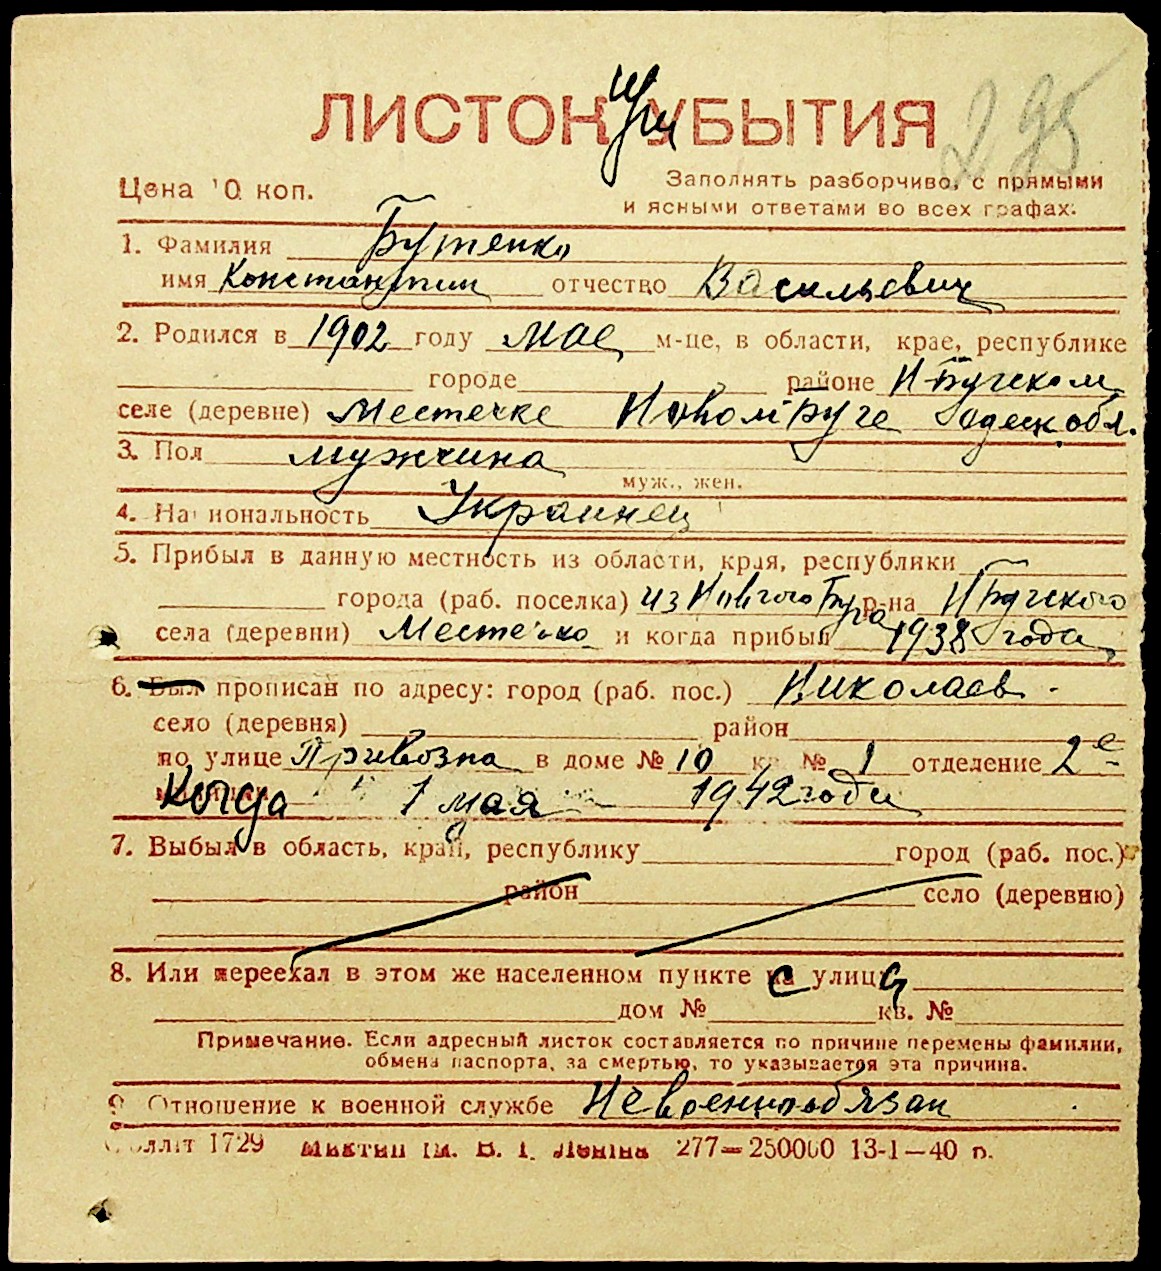 ЛИСТОК УБЫТИЯ
295
Цена 10 коп.
Заполнять разборчиво, с прямыми
и ясными ответами во всех графах.
1. Фамилия Бутенко
имя Константин отчество Васильевич
2. Родился в 1902 году мае м-це, в области, крае, республике
городе районе Н-Бугском
селе (деревне) Местечке Новом Буге Одеск. обл.
3. Пол мужчина
муж., жен.
4. Национальность Украинец
5. Прибыл в данную местность из области, края, республики
города (раб. поселка) из Нового Буга р-на НБугского
села (деревни) Местечко и когда прибыл 1938 года
6. Был прописан по адресу: город (раб. пос.) Николаев
село (деревня) район
по улице Привозна в доме № 10 кв. № 1 отделение 2е
Когда 1 мая 1942 года
7. Выбыл в область, край, республику город (раб. пос.)
район село (деревню)
8. Или переехал в этом же населенном пункте с улицы
дом № кв. №
Примечание. Если адресный листок составляется по причине перемены фамилии,
обмена паспорта, за смертью, то указывается эта причина.
9 Отношение к военной службе Невоеннообязан
1729 277—250000 13-1—40 р.